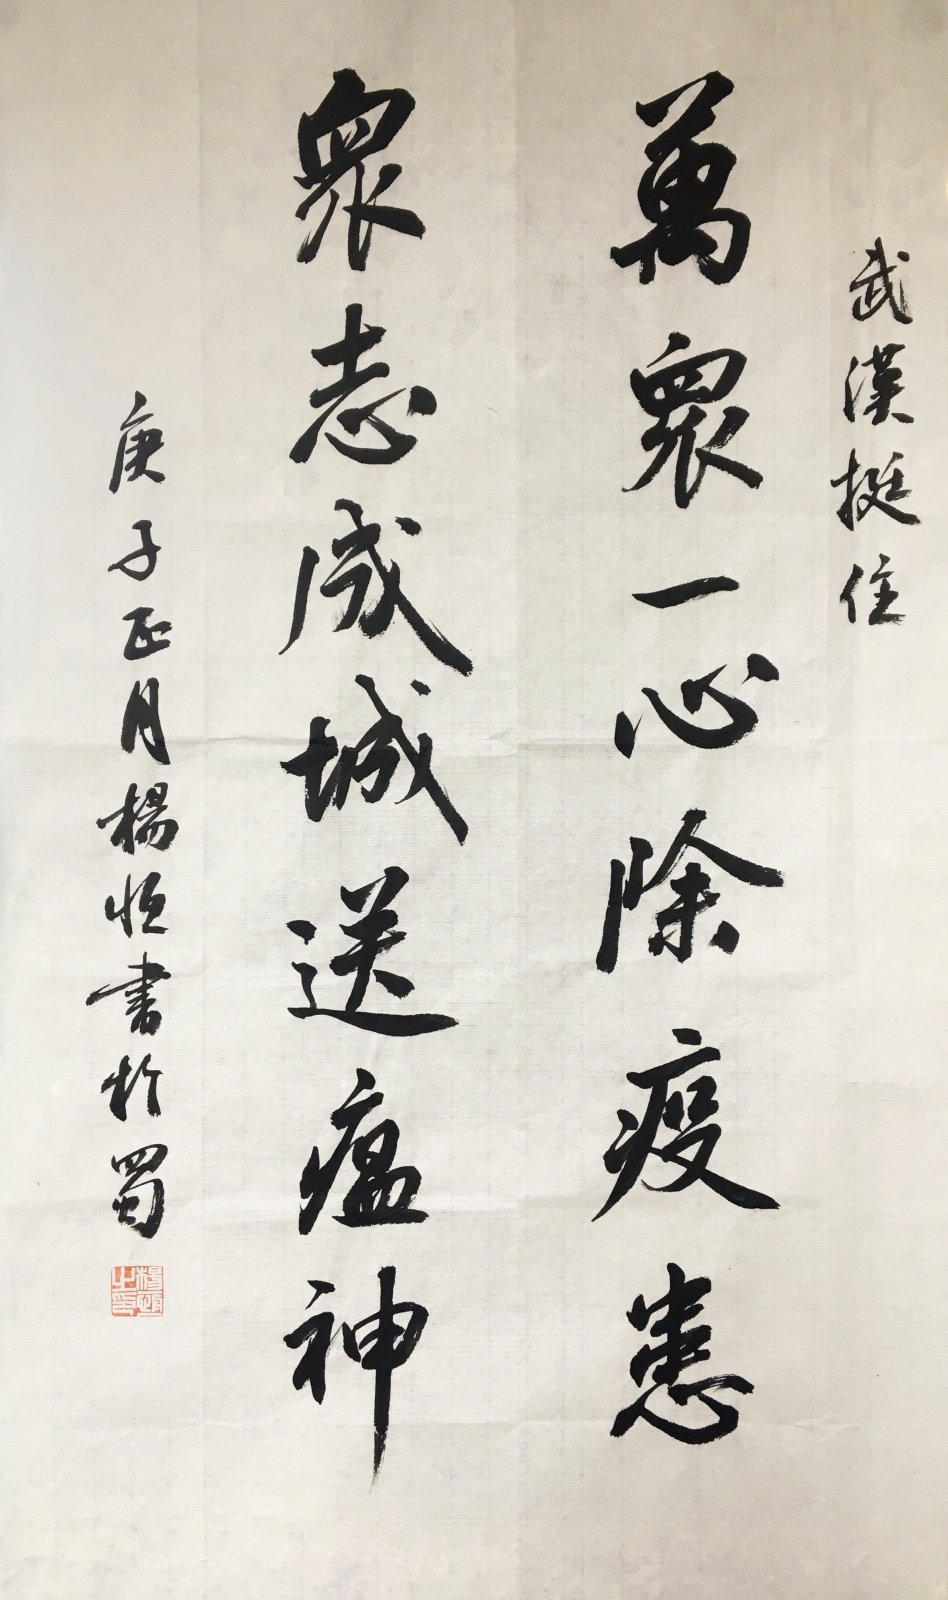 武漢挺住
萬衆一心除疫患
衆志成城送瘟神
庚子正月楊恒書於蜀